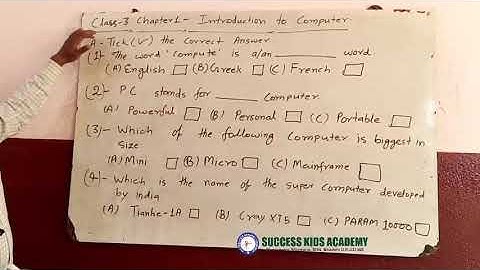 Class-3 Chapter 1 - Introduction to Computer
A - Tick (✓) the Correct Answer
(1) - The word 'compute' is a/an ________ word
(A) English □ (B) Greek □ (C) French □
(2) - PC stands for ______ Computer
(A) Powerful □ (B) Personal □ (C) Portable □
(3) - Which of the following Computer is biggest in
Size
(A) Mini □ (B) Micro □ (C) Mainframe □
(4) - Which is the name of the super Computer developed
by India
(A) Tianhe-1A □ (B) Cray XT5 □ (C) PARAM 10000 □
SUCCESS KIDS ACADEMY